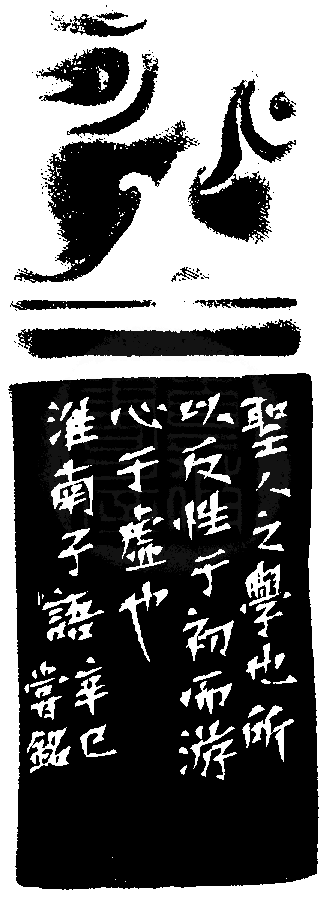 聖人之學也所
以反性于初而游
心于虛也
淮南子語
辛巳
銘